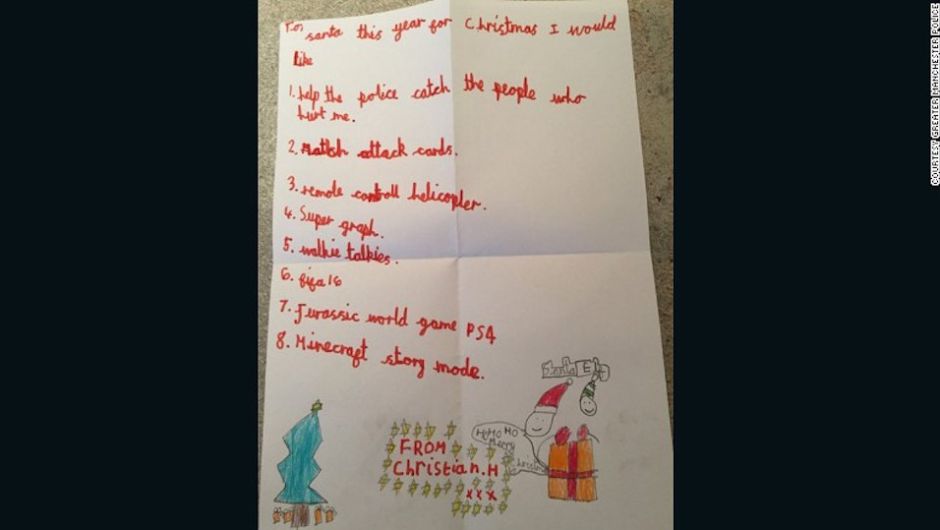 To, santa this year for Christmas I would
like
1. help the police catch the people who
hurt me.
2. Match attack cards.
3. remote controll helicopter.
4. Super graph.
5. walkie talkies.
6. fifa 16
7. Jurassic world game PS4
8. Minecraft story mode.
Santa Elf
HO HO HO
Merry
Christmas
FROM
Christian.H
xxx
COURTESY GREATER MANCHESTER POLICE